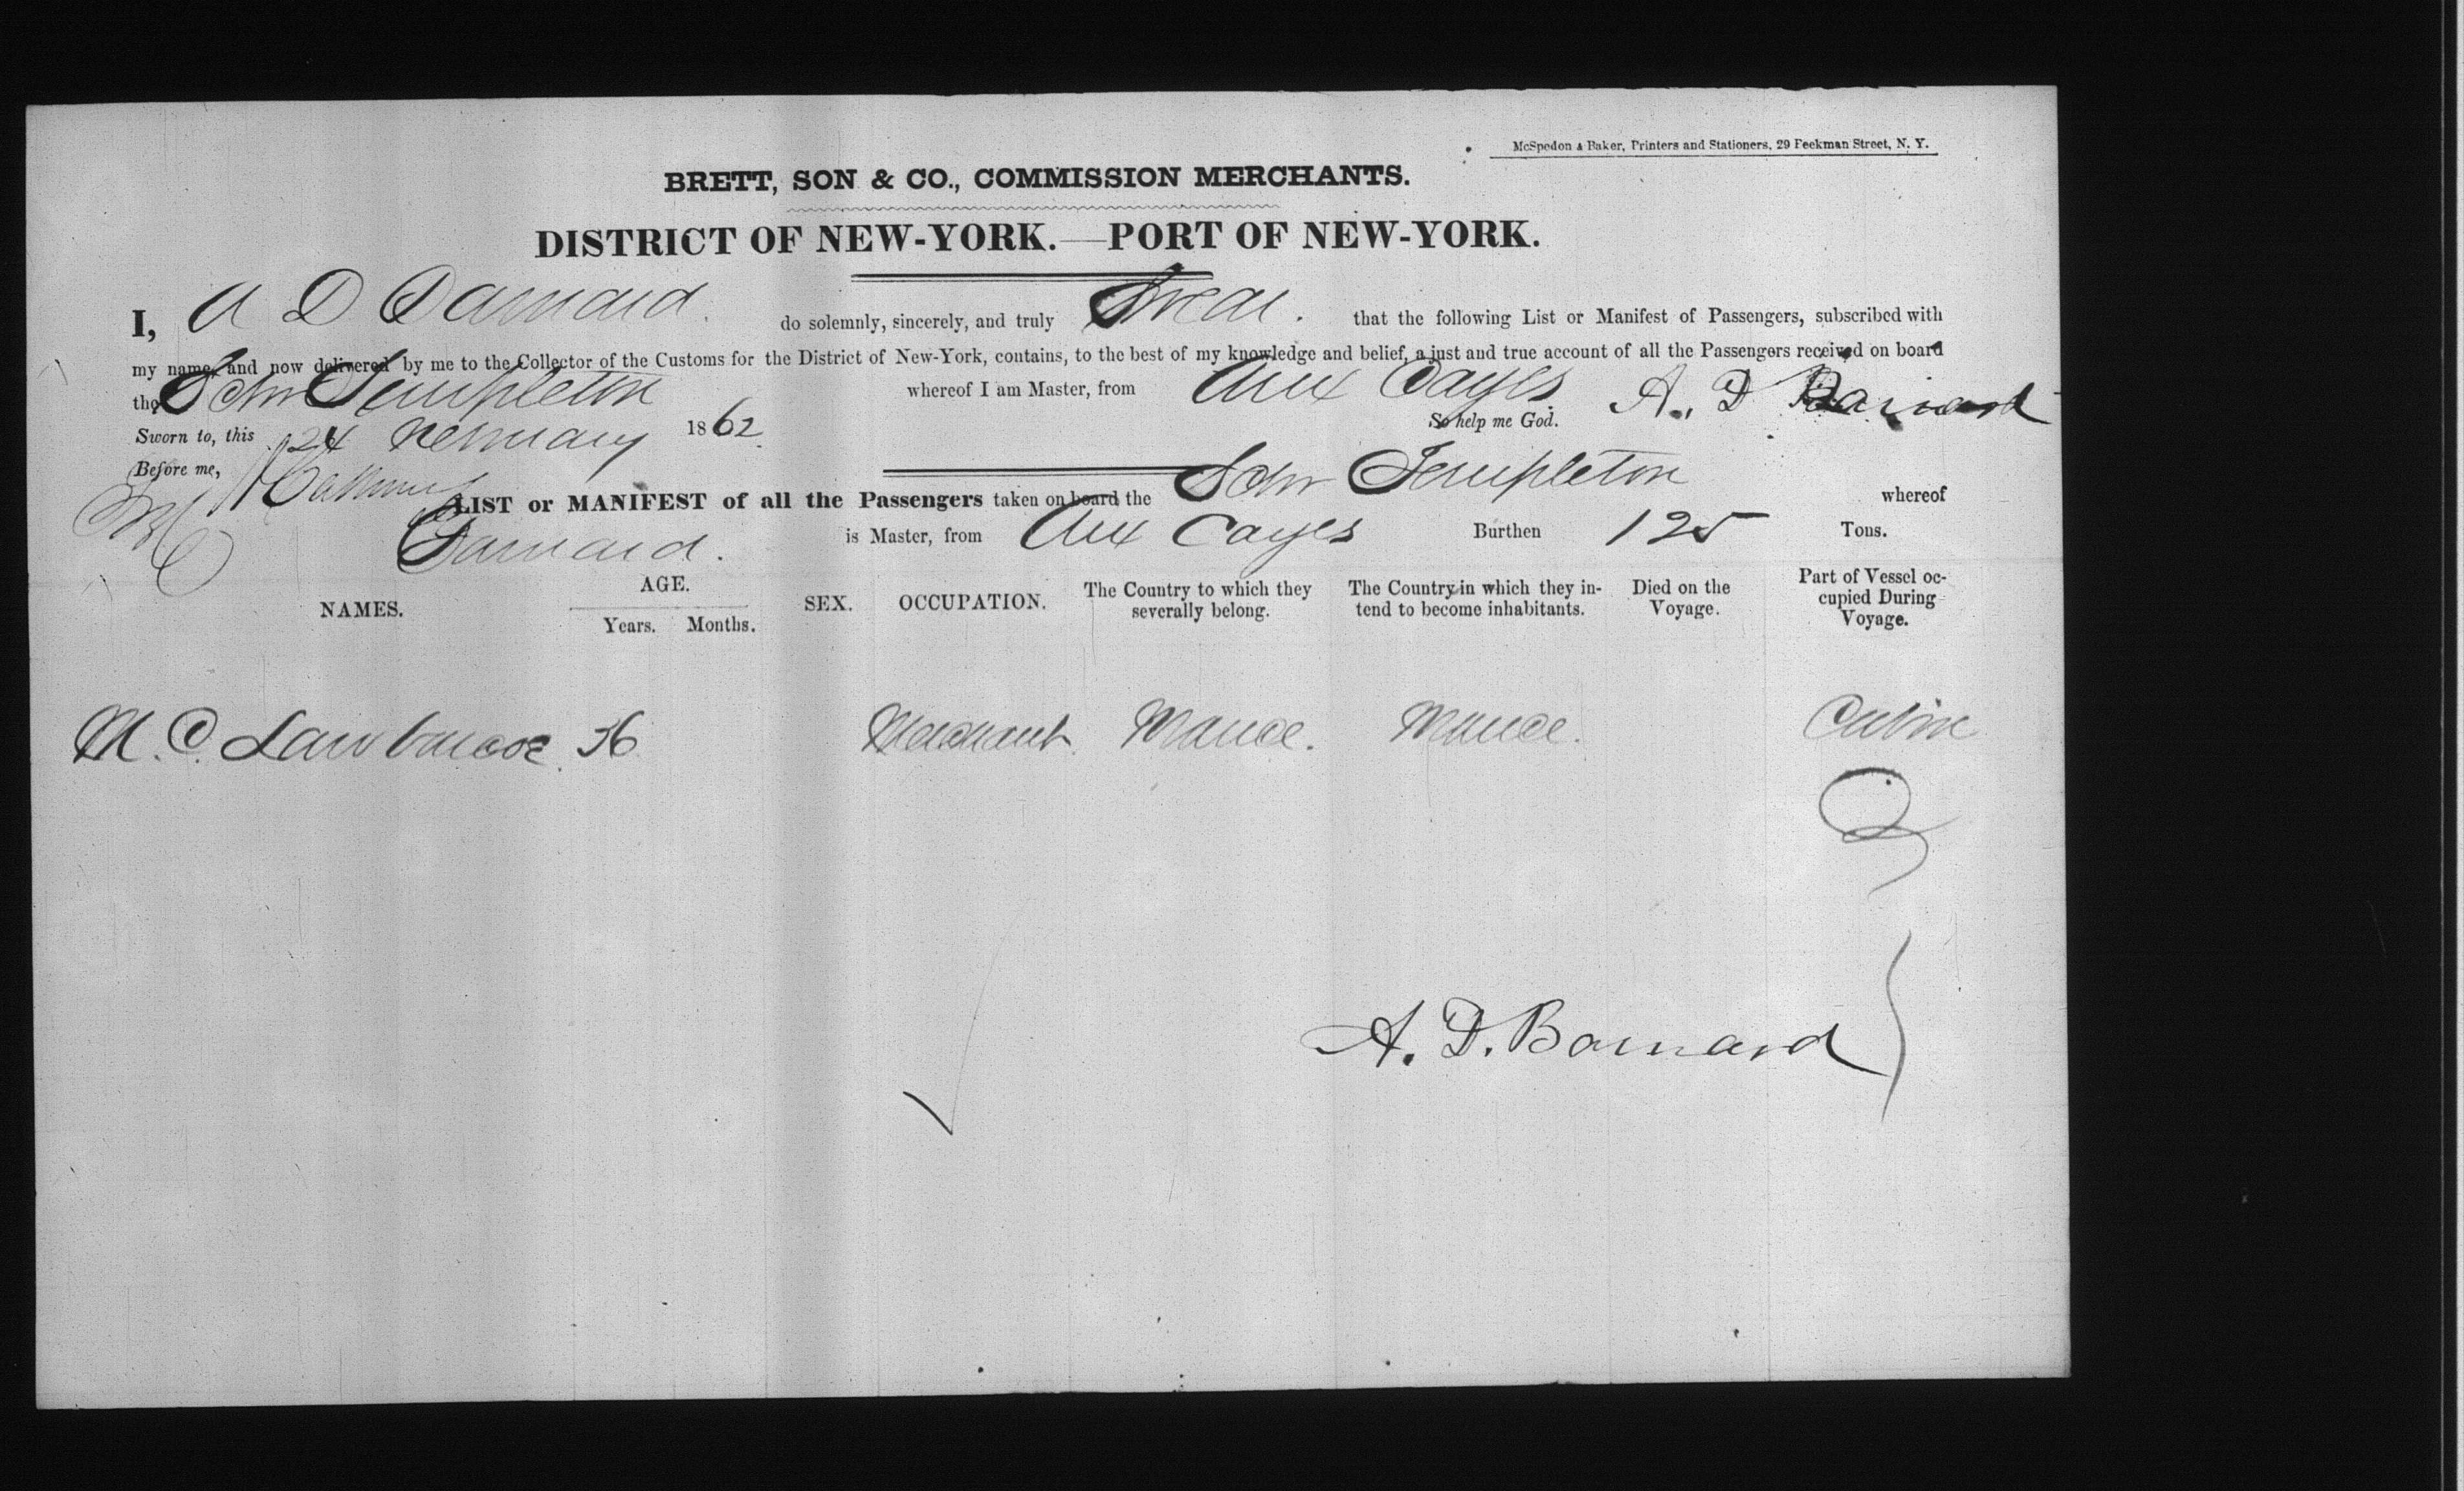 McSpedon & Baker, Printers and Stationers, 29 Feekman Street, N. Y.
BRETT, SON & CO., COMMISSION MERCHANTS.
DISTRICT OF NEW-YORK.—PORT OF NEW-YORK.
I, A D Barnard. do solemnly, sincerely, and truly Swear. that the following List or Manifest of Passengers, subscribed with
my name, and now delivered by me to the Collector of the Customs for the District of New-York, contains, to the best of my knowledge and belief, a just and true account of all the Passengers received on board
the Schr Templeton whereof I am Master, from Aux Cayes
So help me God. A. D Barnard
Sworn to, this 24 February 1862
Before me,
LIST or MANIFEST of all the Passengers taken on board the Schr Templeton whereof
Barnard. is Master, from Aux Cayes Burthen 125 Tons.
NAMES. AGE. Years. Months. SEX. OCCUPATION. The Country to which they severally belong. The Country in which they intend to become inhabitants. Died on the Voyage. Part of Vessel occupied During Voyage.
M. C. 36 Merchant Cabin
A. D. Barnard